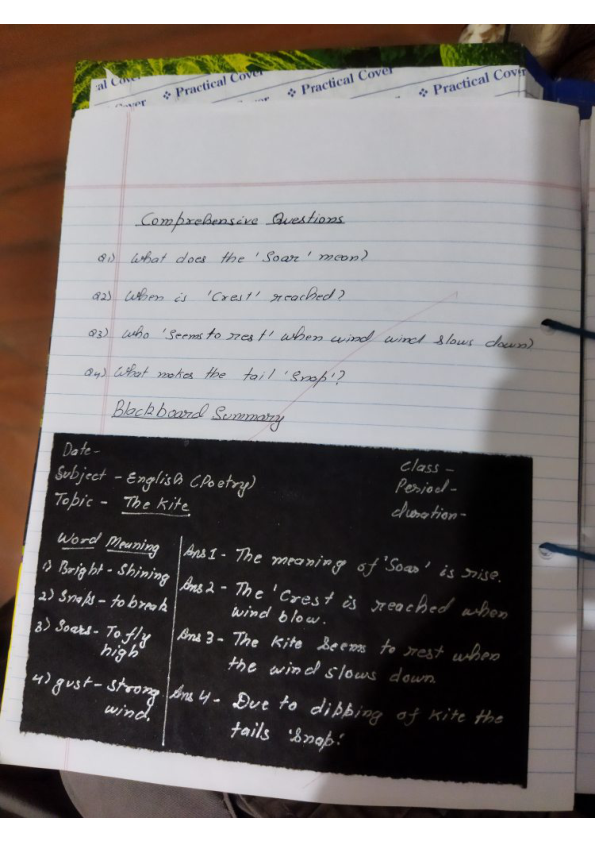 al Cover ❖ Practical Cover ❖ Practical Cover ❖ Practical Cover
Cover
Comprehensive Questions
Q1) What does the 'Soar' mean?
Q2) When is 'Crest' reached?
Q3) Who 'Seems to rest' when wind wind slows down)
Q4) What makes the tail 'Snap'?
Blackboard Summary
Date-
Subject - English (Poetry)
Topic - The Kite
Class -
Period -
duration-
Word Meaning
1) Bright - Shining
2) Snaps - to break
3) Soars - To fly
high
4) gust - strong
wind.
Ans 1 - The meaning of 'Soar' is rise.
Ans 2 - The 'Crest is reached when
wind blow.
Ans 3 - The Kite Seems to rest when
the wind slows down.
Ans 4 - Due to dibbing of kite the
tails 'Snap'.